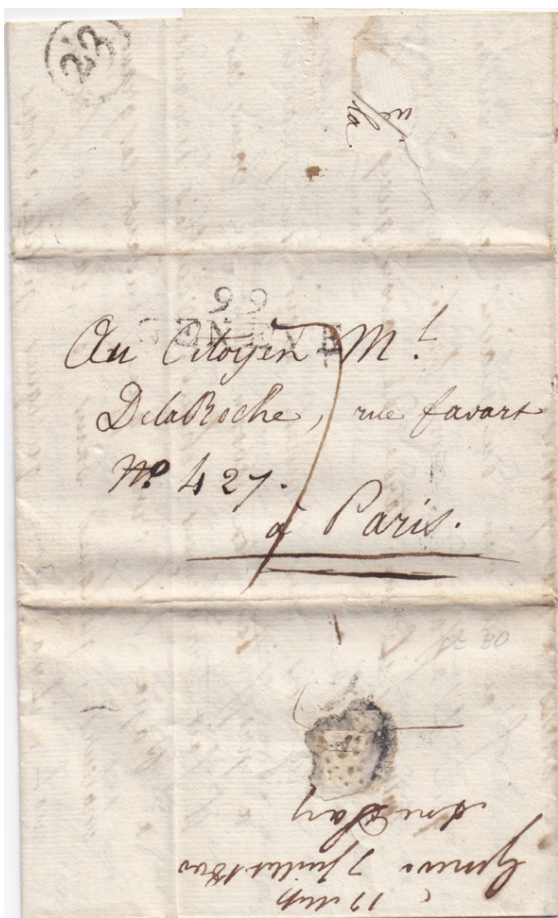 23
99
GENEVE
Au Citoyen M.t
DelaRoche, rue favart
No. 427.
à Paris.
7 Juillet 1800